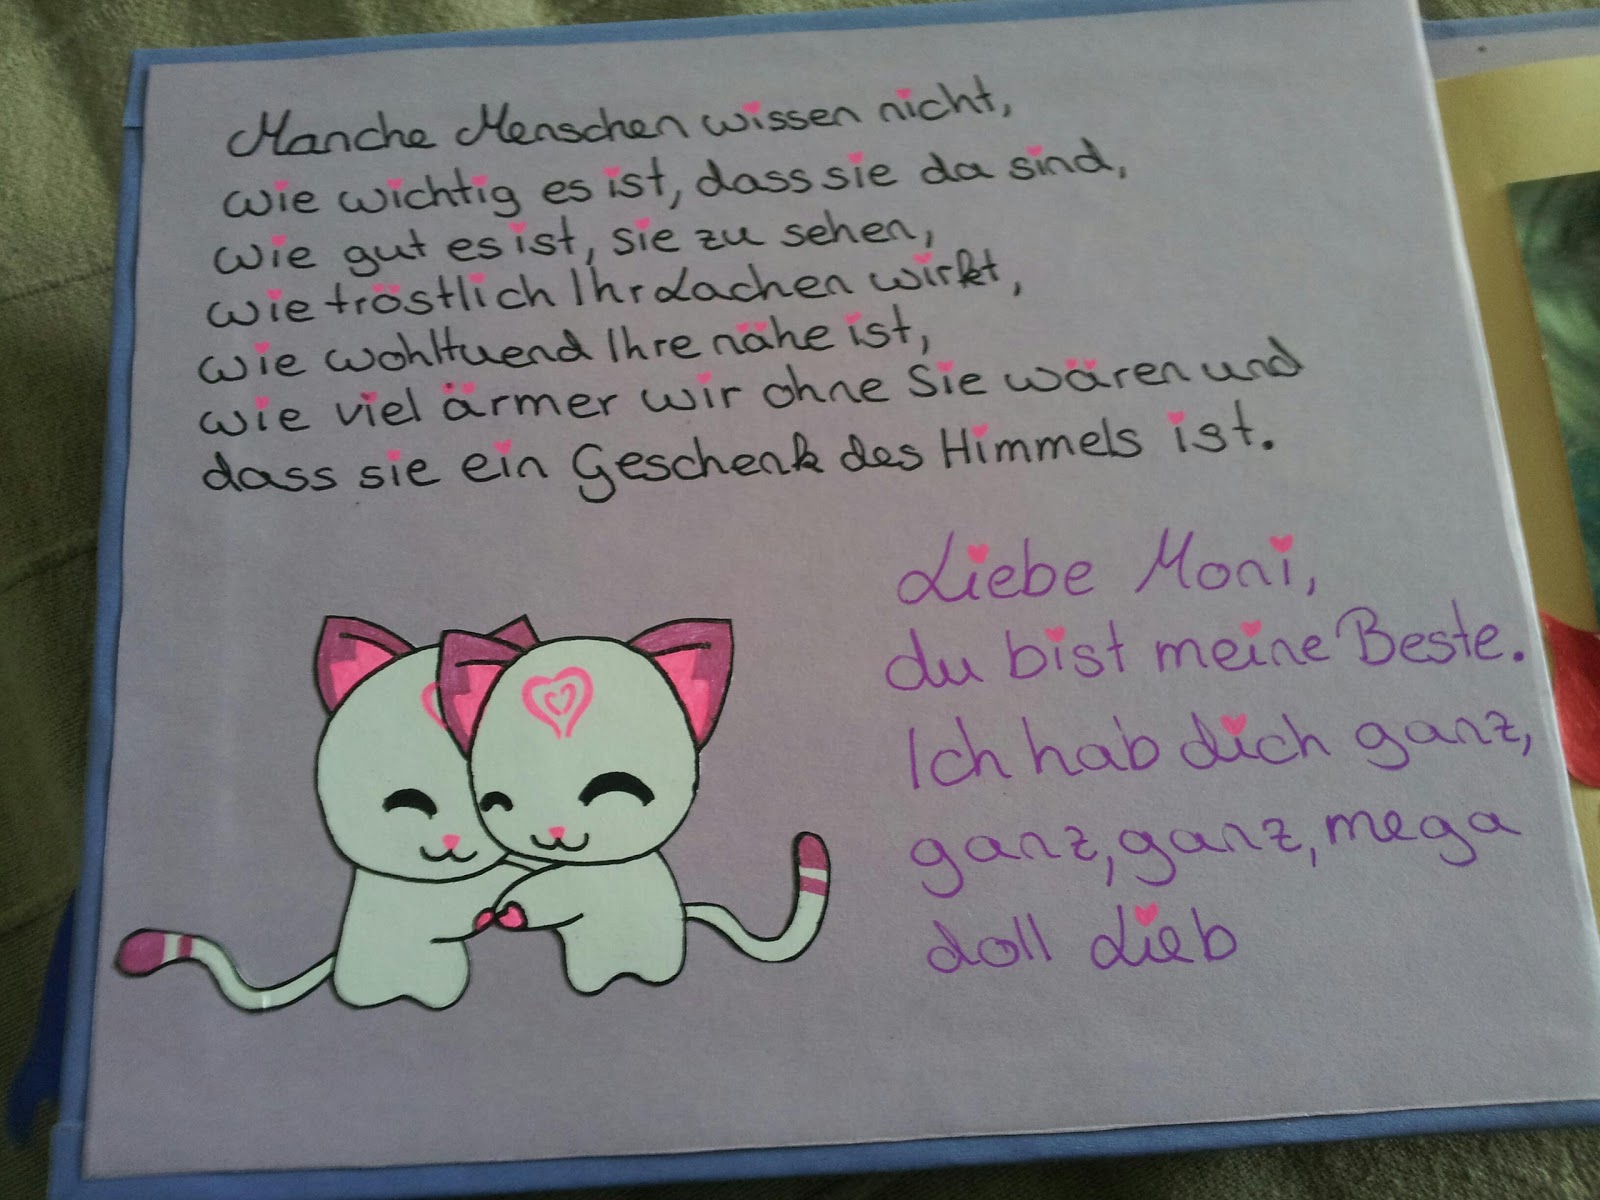 Manche Menschen wissen nicht,
wie wichtig es ist, dass sie da sind,
wie gut es ist, sie zu sehen,
wie tröstlich Ihr Lachen wirkt,
wie wohltuend Ihre nähe ist,
wie viel ärmer wir ohne Sie wären und
dass sie ein Geschenk des Himmels ist.
Liebe Moni,
du bist meine Beste.
Ich hab dich ganz,
ganz, ganz, mega
doll Lieb